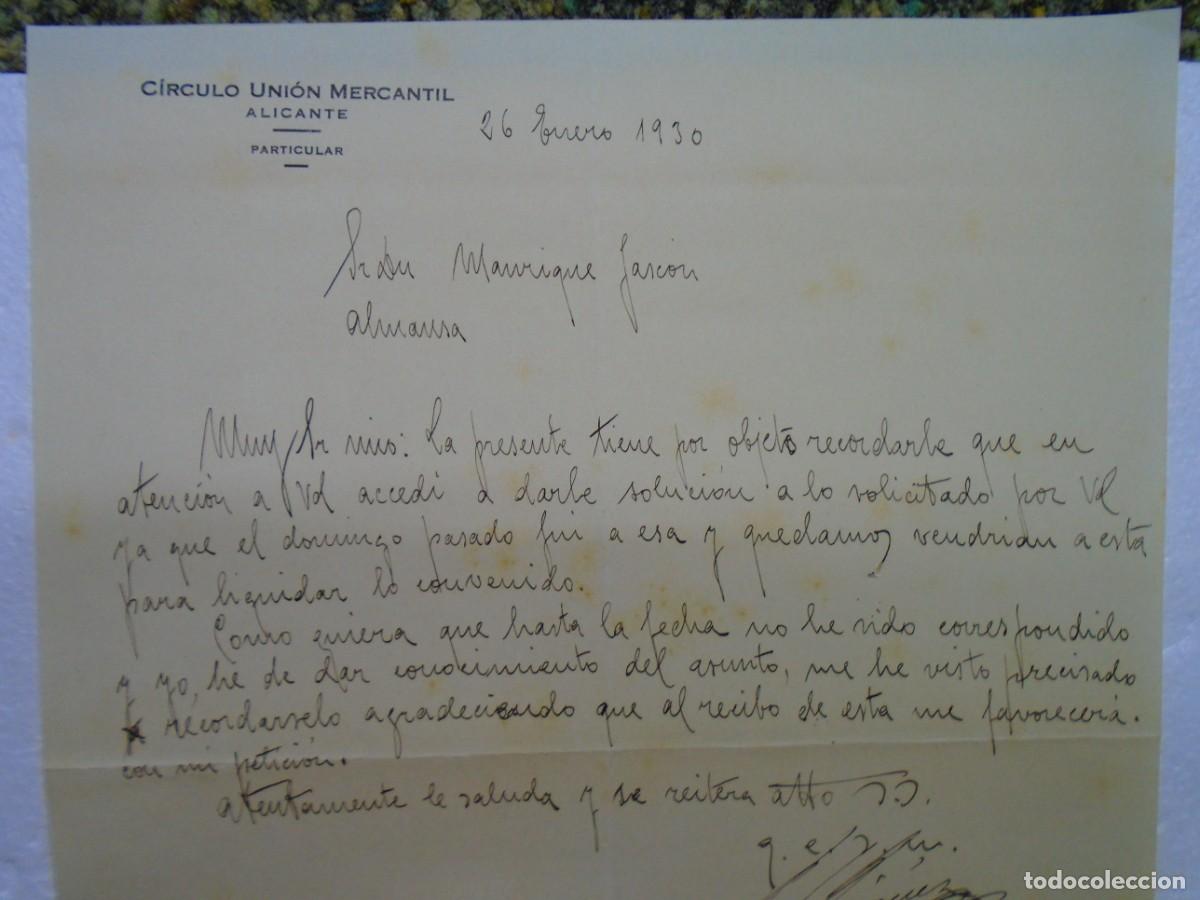 CÍRCULO UNIÓN MERCANTIL
ALICANTE
PARTICULAR
26 Enero 1930
Sr Dn Manrique Gascón
Almansa
Muy Sr mio: La presente tiene por objeto recordarle que en
atención a Vd accedí a darle solución a lo solicitado por Vd
ya que el domingo pasado fui a esa y quedamos vendrian a esta
para liquidar lo convenido.
Como quiera que hasta la fecha no he sido correspondido
y yo, he de dar conocimiento del asunto, me he visto precisado
a recordarselo agradeciendo que al recibo de esta me favorecerá.
con mi petición.
atentamente le saluda y se reitera atto S.S.
q. e. s. m.
todocoleccion